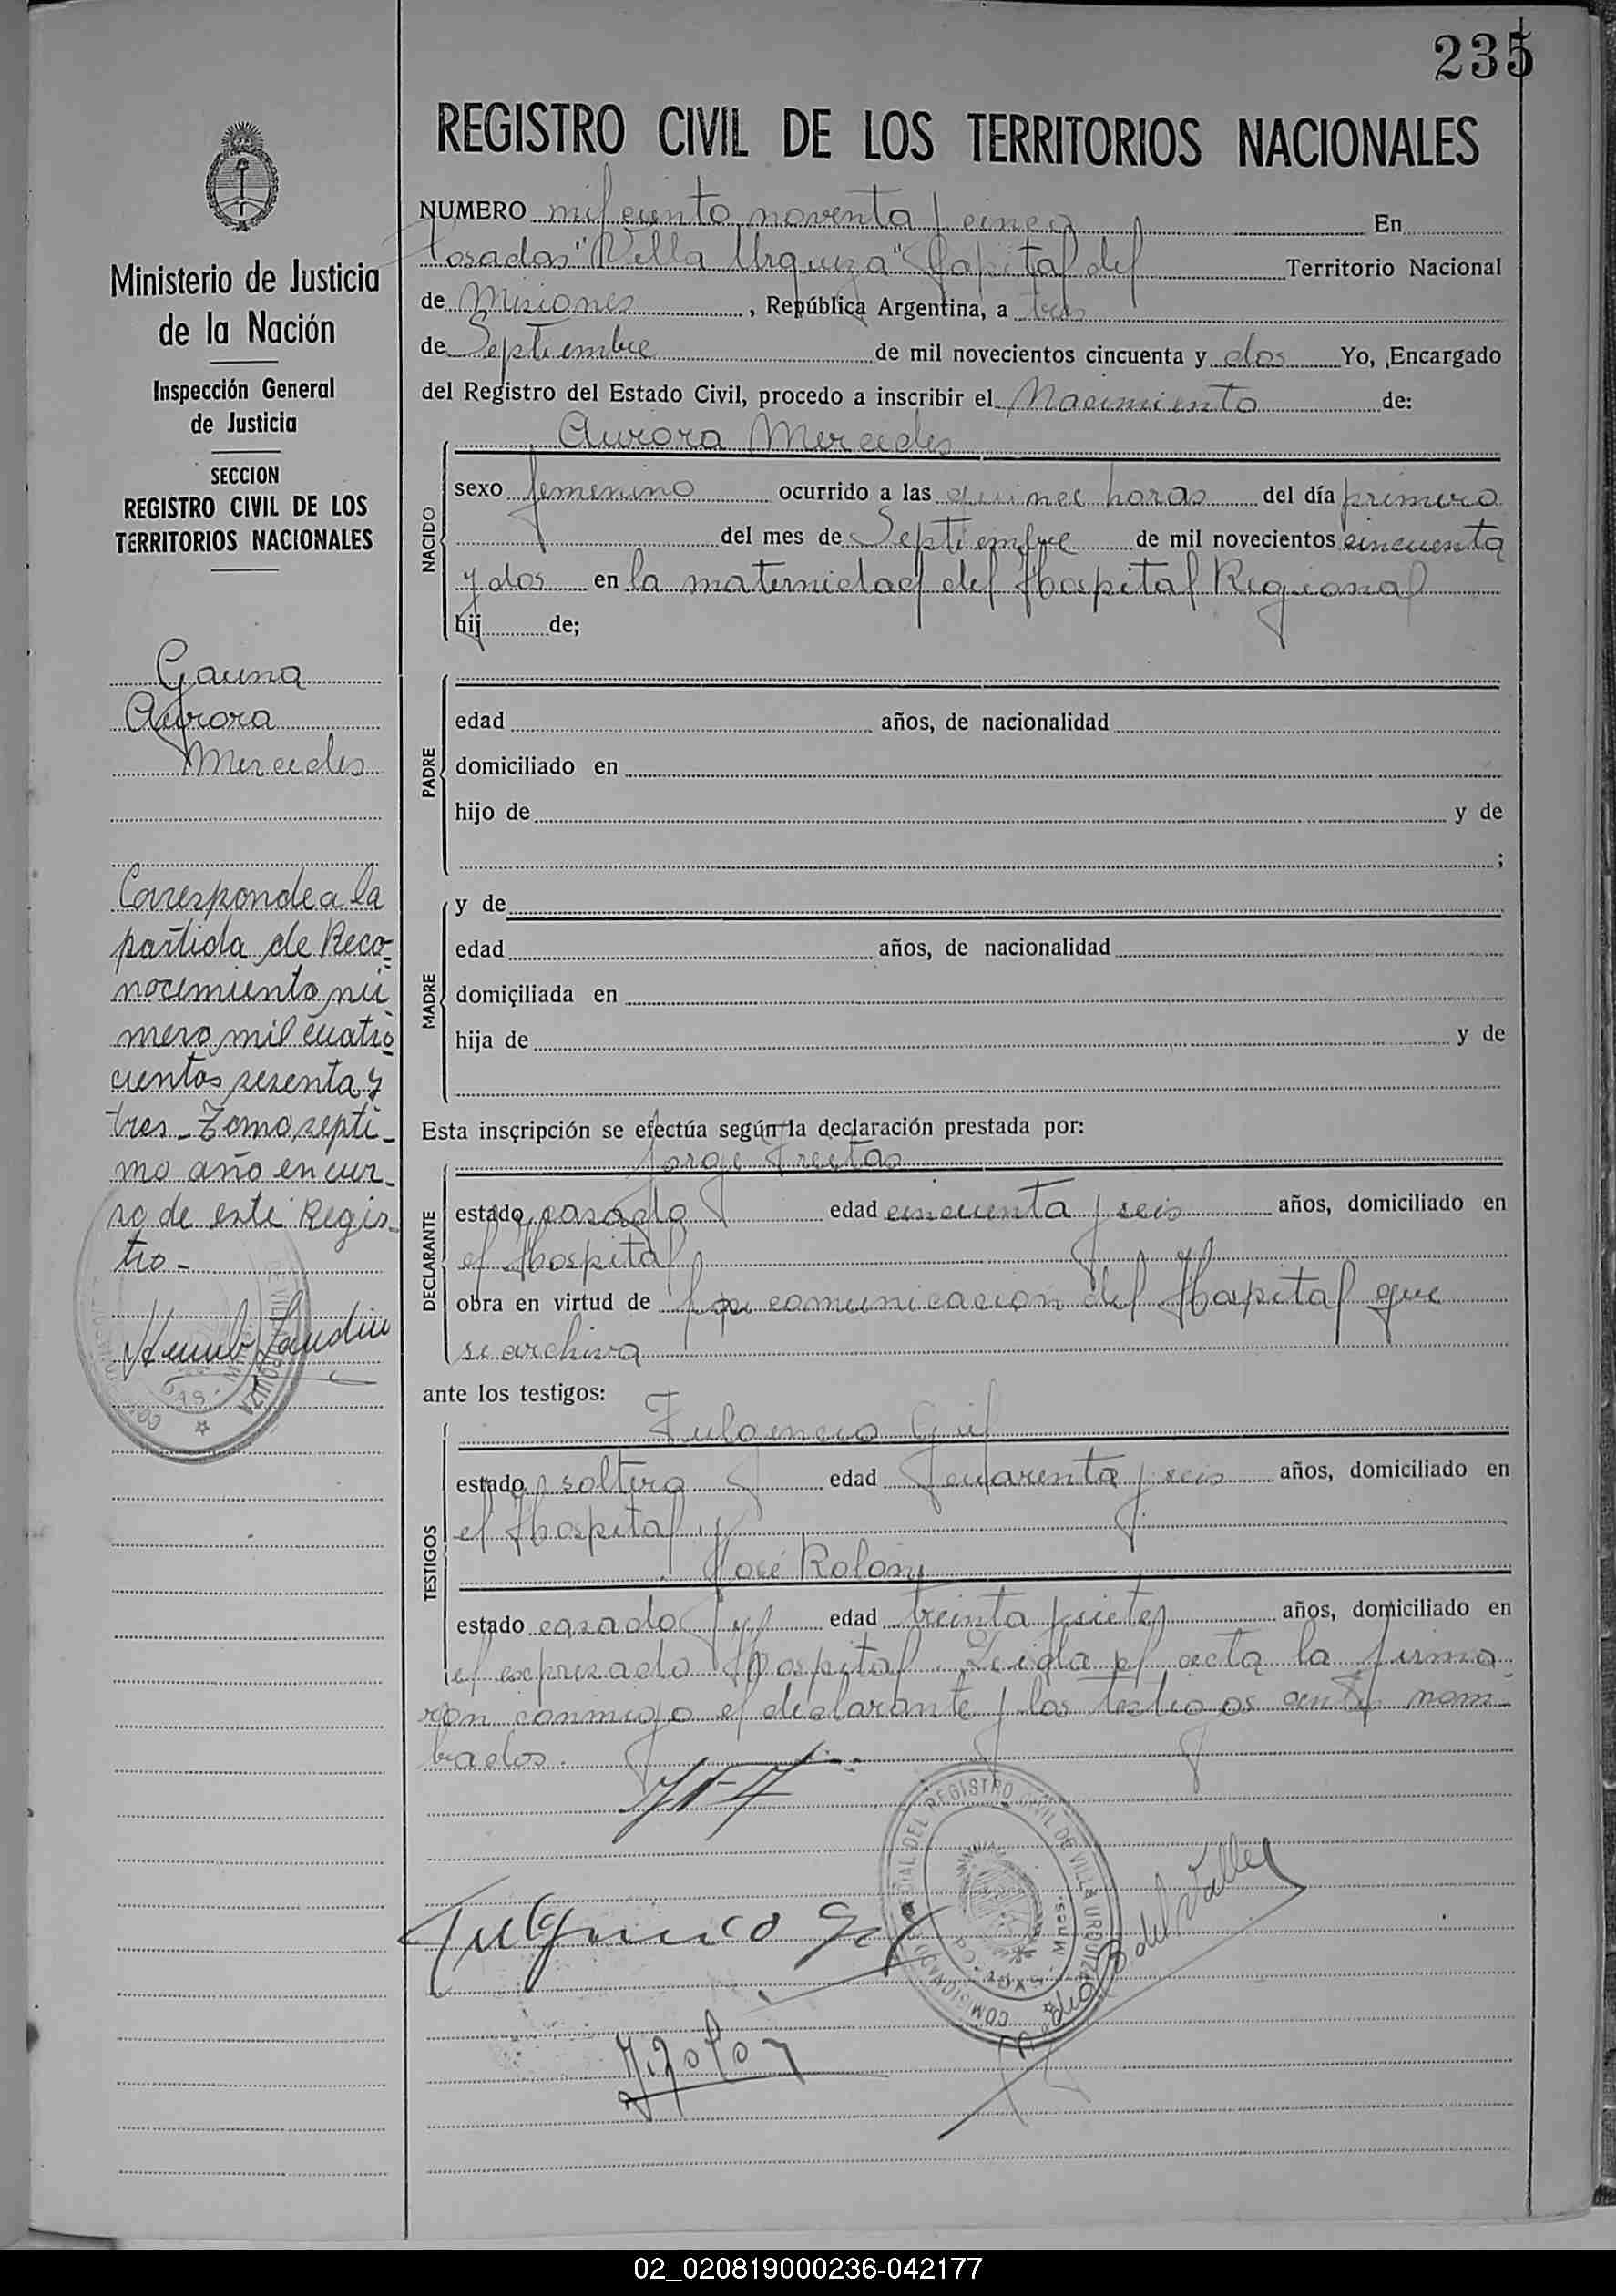 235
REGISTRO CIVIL DE LOS TERRITORIOS NACIONALES
Ministerio de Justicia
de la Nación
Inspección General
de Justicia
SECCION
REGISTRO CIVIL DE LOS
TERRITORIOS NACIONALES
Gauna
Aurora
Mercedes
Corresponde a la
partida de Reco-
nocimiento nú
mero mil cuatro
cientos sesenta y
tres - Tomo septi-
mo año en cur-
so de este Regis-
tro -
NUMERO mil ciento noventa y cinco En
Posadas "Villa Urquiza" Capital del Territorio Nacional
de Misiones, República Argentina, a tres
de Septiembre de mil novecientos cincuenta y dos Yo, Encargado
del Registro del Estado Civil, procedo a inscribir el Nacimiento de:
Aurora Mercedes
NACIDO
sexo femenino ocurrido a las quince horas del día primero
del mes de Septiembre de mil novecientos cincuenta
y dos en la maternidad del Hospital Regional
hij de;
PADRE
edad años, de nacionalidad
domiciliado en
hijo de y de
;
MADRE
y de
edad años, de nacionalidad
domiciliada en
hija de y de
Esta inscripción se efectúa según la declaración prestada por:
Jorge Freitas
DECLARANTE
estado casado edad cincuenta y seis años, domiciliado en
el Hospital
obra en virtud de la comunicacion del Hospital que
se archiva
ante los testigos:
Fulgencio Gil
TESTIGOS
estado soltero edad cuarenta y seis años, domiciliado en
el Hospital y
José Rolon
estado casado edad treinta y siete años, domiciliado en
el expresado Hospital. Leida el acta la firma
ron conmigo el declarante y los testigos ante nom-
brados.
Fulgencio Gil
J. Rolon
COMISIONADO DEL REGISTRO CIVIL DE VILLA URQUIZA
Mnes.
B. del Valle
02_020819000236-042177